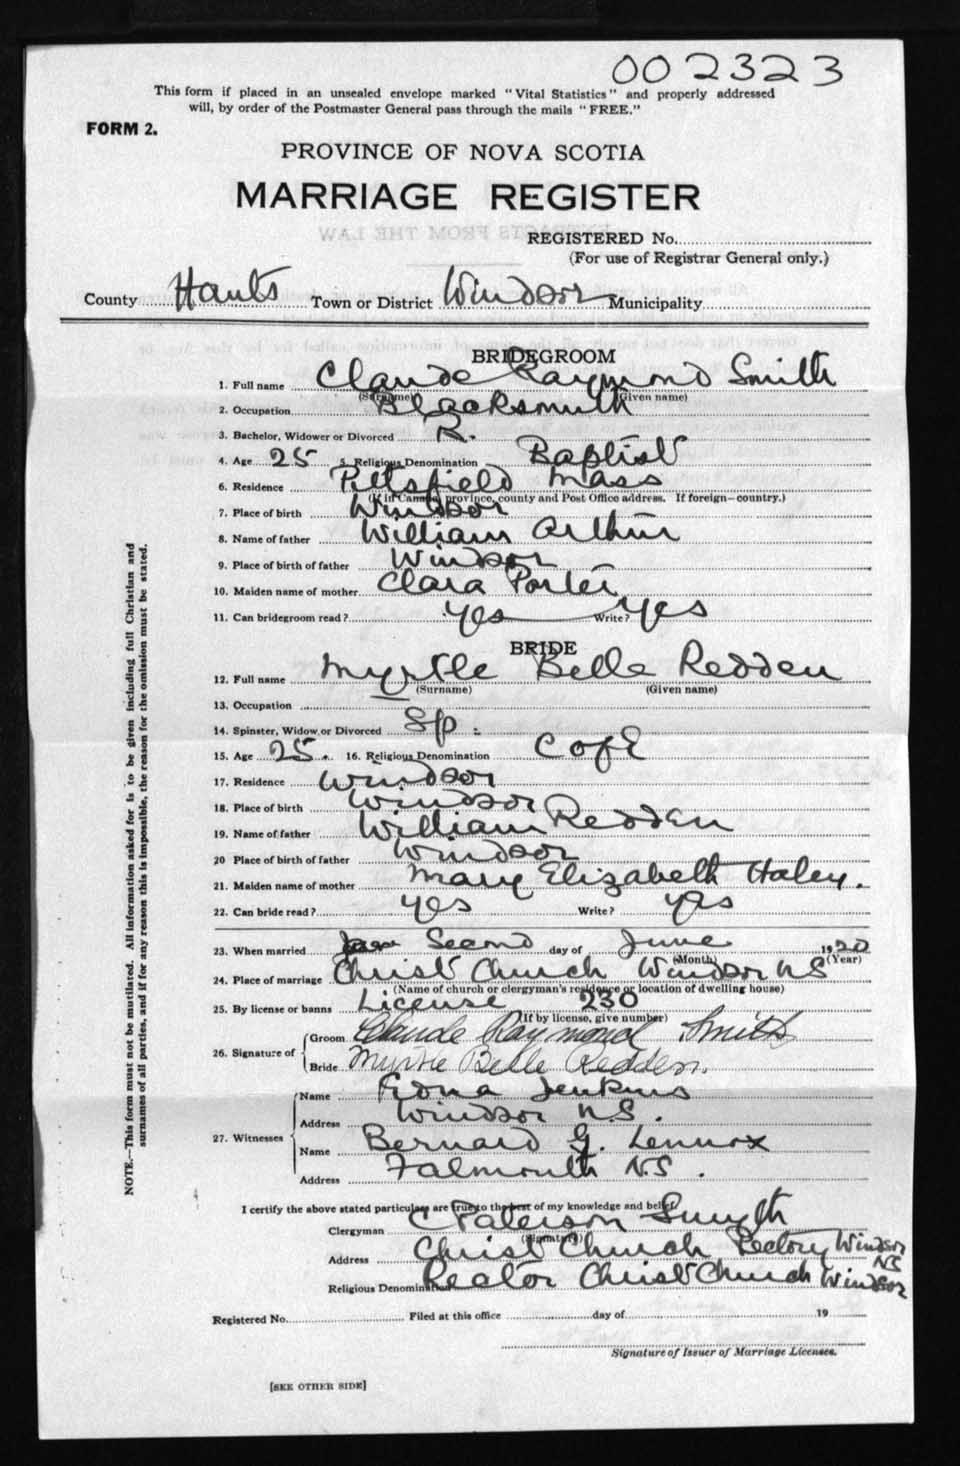 002323
This form if placed in an unsealed envelope marked "Vital Statistics" and properly addressed
will, by order of the Postmaster General pass through the mails "FREE."
FORM 2.
PROVINCE OF NOVA SCOTIA
MARRIAGE REGISTER
EXTRACTS FROM THE LAW
REGISTERED No.
(For use of Registrar General only.)
County Hants Town or District Windsor Municipality
BRIDEGROOM
1. Full name Claude Raymond Smith
(Surname) (Given name)
2. Occupation Blacksmith
3. Bachelor, Widower or Divorced B.
4. Age 25 5. Religious Denomination Baptist
6. Residence Pittsfield Mass
(If in Canada, province, county and Post Office address. If foreign—country.)
7. Place of birth Windsor
8. Name of father William Arthur
9. Place of birth of father Windsor
10. Maiden name of mother Clara Porter
11. Can bridegroom read? yes Write? yes
BRIDE
12. Full name Myrtle Belle Redden
(Surname) (Given name)
13. Occupation
14. Spinster, Widow, or Divorced Sp.
15. Age 25. 16. Religious Denomination C of E
17. Residence Windsor
18. Place of birth Windsor
19. Name of father William Redden
20 Place of birth of father Windsor
21. Maiden name of mother Mary Elizabeth Haley.
22. Can bride read? yes Write? yes
23. When married Second day of June 1920
(Month) (Year)
24. Place of marriage Christ Church Windsor NS
(Name of church or clergyman's residence or location of dwelling house)
25. By license or banns License 230
(If by license, give number)
26. Signature of Groom Claude Raymond Smith
Bride Myrtle Belle Redden.
27. Witnesses Name Edna Jenkins
Address Windsor N.S.
Name Bernard G. Lennox
Address Falmouth N.S.
I certify the above stated particulars are true to the best of my knowledge and belief.
Clergyman C Paterson Smyth
(Signature)
Address Christ Church Rectory Windsor NS
Religious Denomination Rector Christ Church Windsor
Registered No. Filed at this office day of 19
Signature of Issuer of Marriage Licenses.
[SEE OTHER SIDE]
NOTE.—This form must not be mutilated. All information asked for is to be given including full Christian and
surnames of all parties, and if for any reason this is impossible, the reason for the omission must be stated.